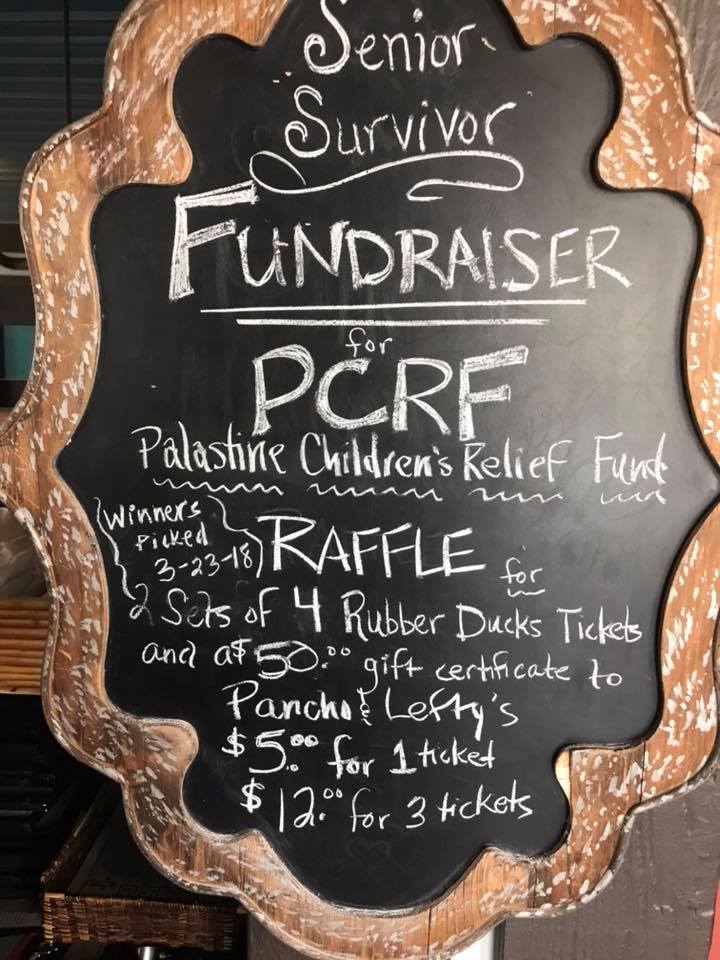 Senior
Survivor
FUNDRAISER
for
PCRF
Palastine Children's Relief Fund
Winners
Picked
3-23-18
RAFFLE for
2 Sets of 4 Rubber Ducks Tickets
and a $50.00 gift certificate to
Pancho & Lefty's
$5.00 for 1 ticket
$12.00 for 3 tickets